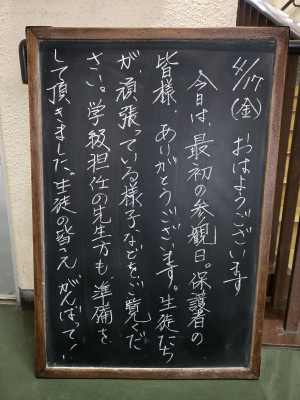 4/17(金) おはようございます
今日は、最初の参観日。保護者の
皆様、ありがとうございます。生徒たち
が、頑張っている様子などをご覧くだ
さい。学級担任の先生方も、準備を
して頂きました。生徒の皆さん がんばって!